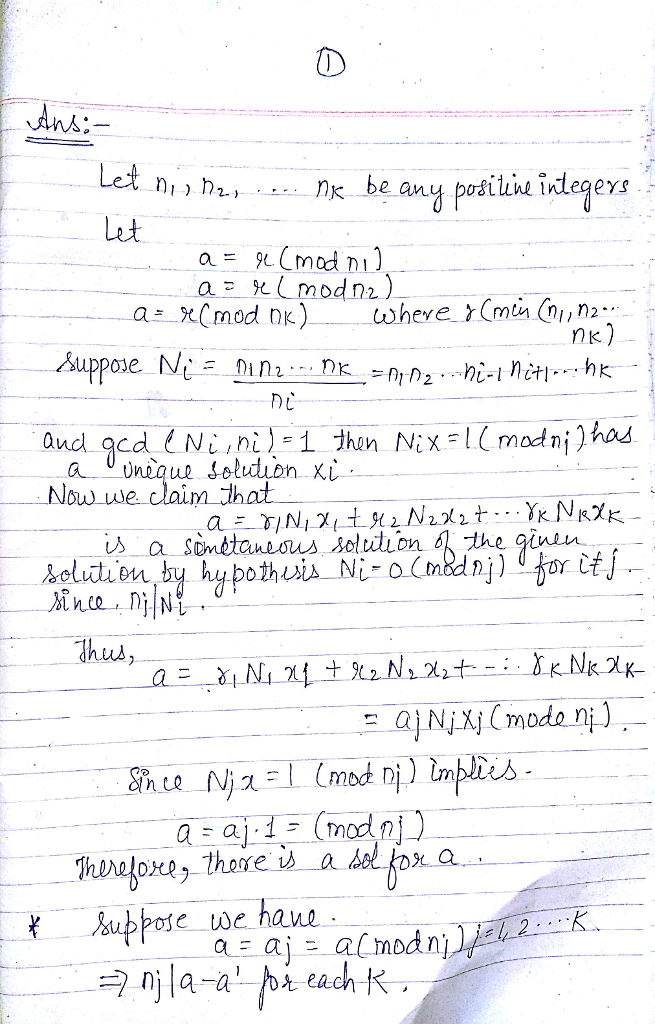 ①
Ans:-
Let n1, n2, .... nK be any positive integers
Let
a = r (mod n1)
a = r (mod n2)
a = r (mod nK) where r (min (n1, n2..
nK)
Suppose Ni = n1n2 ... nK / ni = n1n2 ... ni-1 ni+1 ... nK
and gcd (Ni, ni) = 1 then Nix = 1 (mod nj) has
a unique solution xi.
Now we claim that
a = r1N1x1 + r2N2x2 + ... rKNKxK
is a simétaneous solution of the given
solution by hypothesis Ni = 0 (mod nj) for i≠j.
since, nj|Ni.
Thus,
a = r1 N1 x1 + r2 N2 x2 + --: rK NK xK
= aj Nj xj (mode nj).
Since Njx = 1 (mod nj) implies-
a = aj.1 = (mod nj)
Therefore, there is a sol for a.
* Suppose we have.
a = aj = a (mod nj) j=1, 2 .....K.
⇒ nj|a-a' for each K.